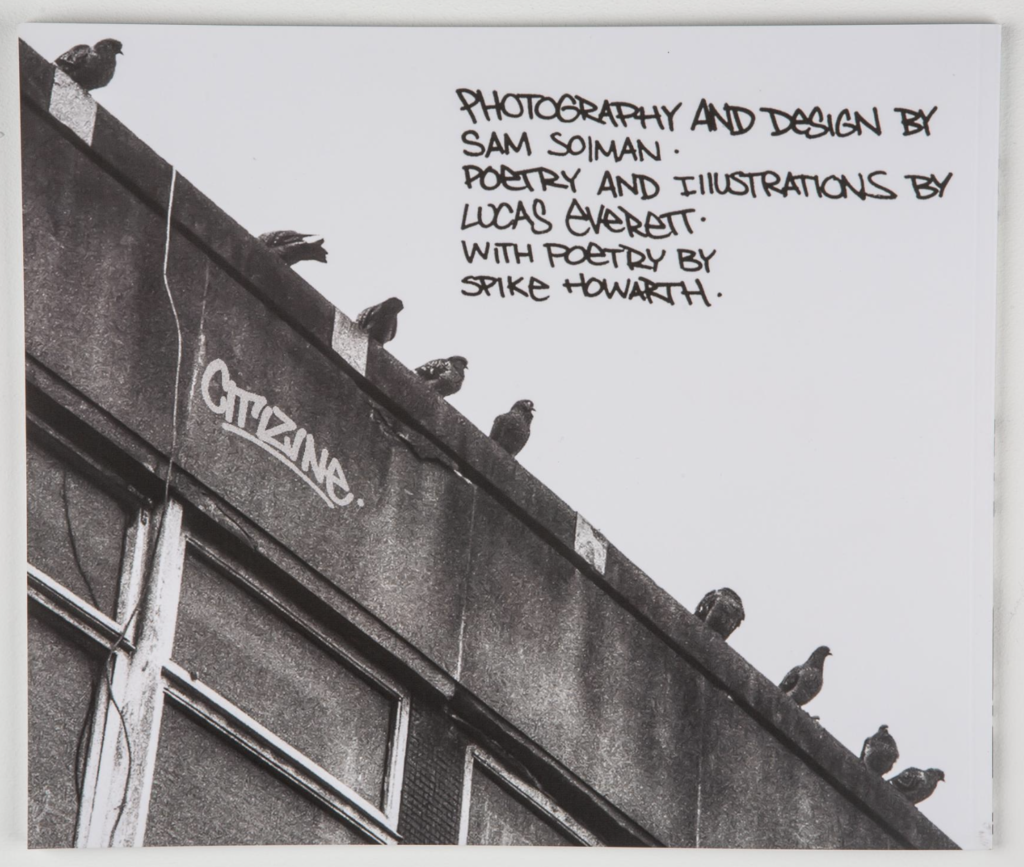 PHOTOGRAPHY AND DESIGN BY
SAM SOLMAN.
POETRY AND ILLUSTRATIONS BY
LUCAS EVERETT.
WITH POETRY BY
SPIKE HOWARTH.
CITIZINE.